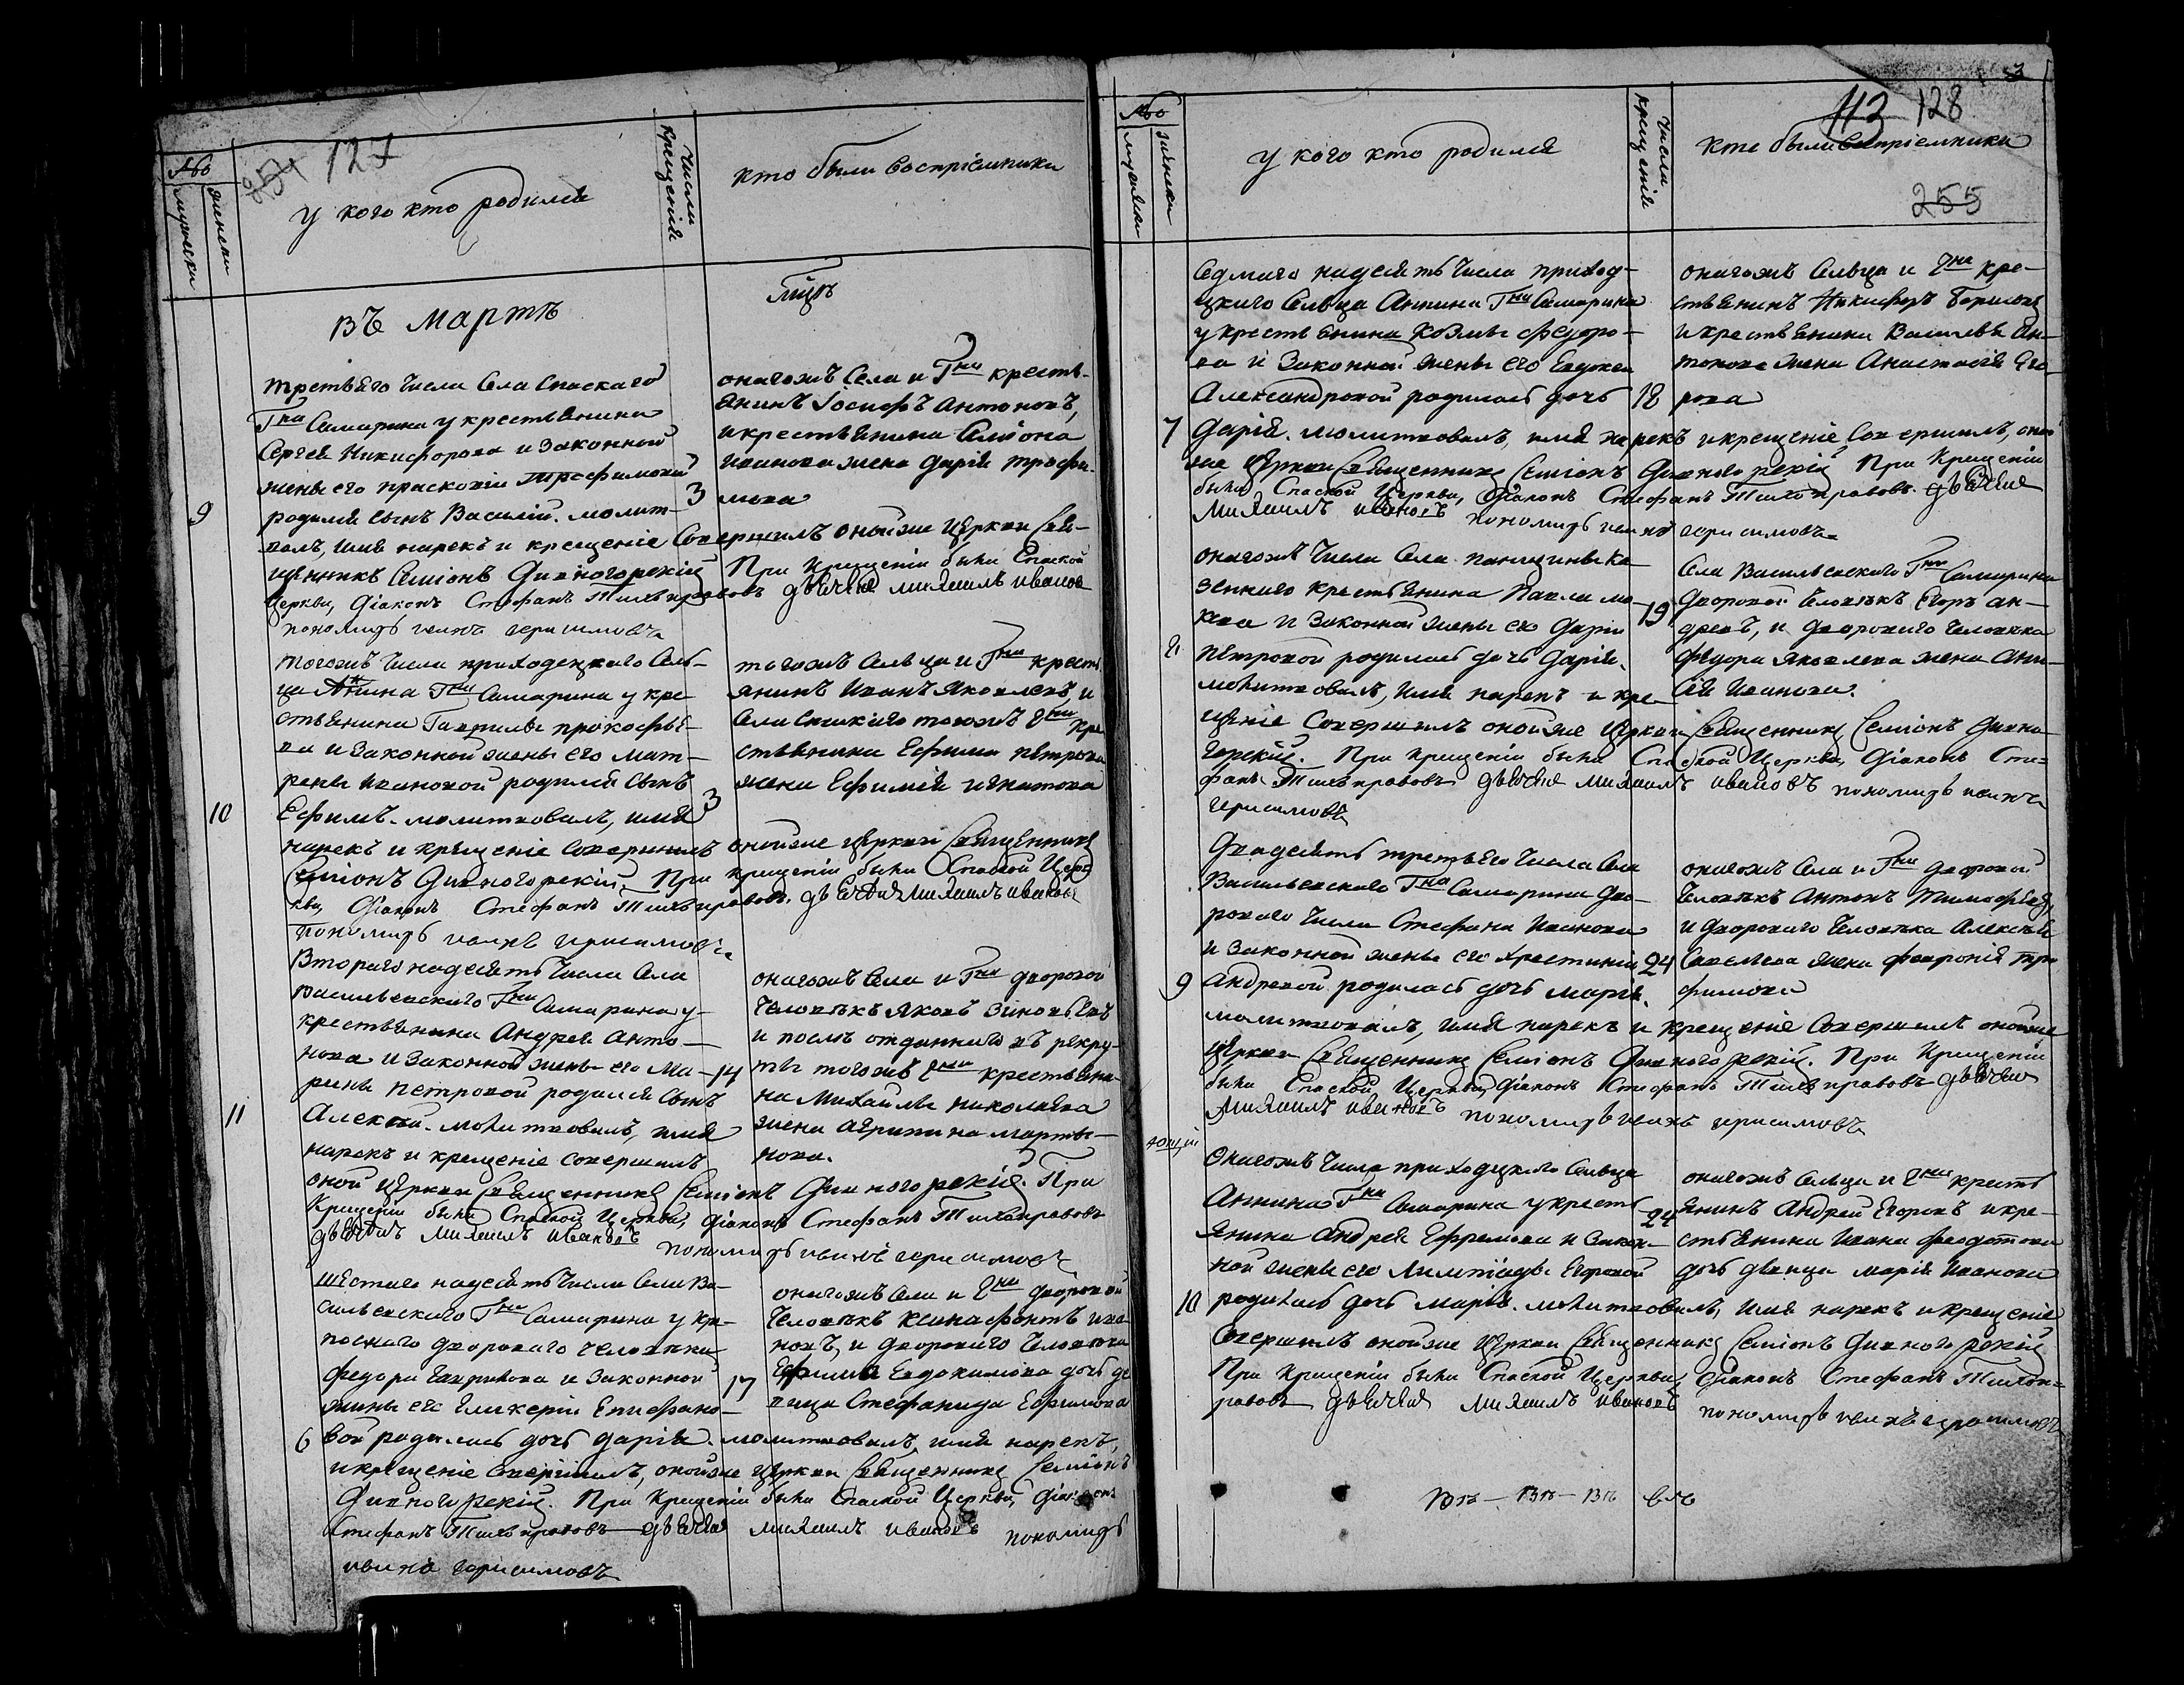 254 127
№
мужеска
женска
у кого кто родился
Числа крещенія
кто были воспріемники
Въ Мартѣ
третьяго числа села Спаскаго
Гна Самарина у крестьянина
Сергея Никифорова и законной
жены его Прасковіи Трофимовой
9 родился сынъ Василій. молит- 3
вовалъ, имя нарекъ и крещеніе совершилъ оной же церкви свя-
щенникъ Семіонъ Дивногорскій При крещеніи были Спаской
церкви, діаконъ Стефанъ Тихонравовъ дьячекъ Михаилъ Ивановъ
пономарь Герасимовъ
онагожъ села и Гна кресть-
янинъ Іосифъ Антоновъ,
и крестьянина Семіона
Иванова жена Дарія Трофи-
мова
тогожъ числа приходскаго сель-
ца Аннина Гна Самарина у кре-
стьянина Гаврилы Прокофье-
ва и законной жены его Мат-
рены Ивановой родился сынъ
10 Ефимъ. молитвовалъ, имя 3
нарекъ и крещеніе совершилъ оной же церкви священникъ
Семіонъ Дивногорскій. При крещеніи были Спаской Цер-
кви, Діаконъ Стефанъ Тихонравовъ. дьячекъ Михаилъ Ивановъ
пономарь Герасимовъ
тогожъ сельца и Гна кресть
янинъ Иванъ Яковлевъ и
села Спаскаго тогожъ Гна кре
стьянина Ефима Петрова
жена Ефимія Игнатова
Втораго надесять числа села
Васильевскаго Гна Самарина у
крестьянина Андрея Анто-
нова и законной жены его Ма- 14
рины Петровой родился сынъ
11 Алексѣй. молитвовалъ, имя
нарекъ и крещеніе совершилъ
оной церкви священникъ Семіонъ Дивногорскій. При
крещеніи были Спаской Церкви, діаконъ Стефанъ Тихонравовъ
дьячекъ Михаилъ Ивановъ пономарь Герасимовъ
онагожъ села и Гна дворовой
человѣкъ Яковъ Зиновьевъ
и послѣ отданнаго въ рекру-
ты тогожъ Гна крестьяни-
на Михайлы Николаева
жена Агрипина Марты-
нова.
шестаго надесять числа села Ва-
сильевскаго Гна Самарина у кре-
поснаго двороваго человѣка
Федора Гаврилова и законной 17
жены его Гликеріи Епифано-
6 вой родилась дочь Дарія. молитвовалъ, имя нарекъ,
и крещеніе совершилъ, оной же церкви священникъ Семіонъ
Дивногорскій. При крещеніи были Спаской Церкви, діаконъ
Стефанъ Тихонравовъ дьячекъ Михаилъ Ивановъ пономарь
Герасимовъ
онагожъ села и Гна дворовой
человѣкъ Ксинофонтъ Ива-
новъ, и двороваго человѣка
Ефима Евдокимова дочь де
вица Стефанида Ефимова
113 128
255
№
у кого кто родился
Числа крещенія
кто были воспріемники
седмаго надесять числа приход-
цкаго сельца Аннина Гна Самарина
у крестьянина Козмы Федоро-
ва и законной жены его Евдокеи
Александровой родилась дочь 18
онагожъ сельца и Гна кре-
стьянинъ Никифоръ Борисовъ
и крестьянина Василья Ан-
тонова жена Анастасія Его
рова
7 Дарія. молитвовалъ, имя нарекъ и крещеніе совершилъ, оной
же церкви священникъ Семіонъ Дивногорскій При Крещеніи
были Спаской Церкви, Діаконъ Стефанъ Тихонравовъ. дьячекъ
Михаилъ Ивановъ пономарь Герасимовъ
онагожъ числа села Паншина ка
зеннаго крестьянина Павла
и законной жены его Дарьи 19
8 Петровой родилась дочь Дарія.
молитвовалъ, имя нарекъ и кре-
щеніе совершилъ оной же церкви священникъ Семіонъ Дивно-
горскій. При крещеніи были Спаской Церкви, діаконъ Сте-
фанъ Тихонравовъ дьячекъ Михаилъ Ивановъ пономарь
Герасимовъ
села Васильевскаго Гна Самарина
дворовой человѣкъ Егоръ Ан-
дреевъ, и двороваго человѣка
Федора Яковлева жена
Иванова.
Двадесять третьяго числа села
Васильевскаго Гна Самарина дво-
роваго числа Стефана Иванова
и законной жены его Хрестиньи 24
9 Андревой родилась дочь Марія.
молитвовалъ, имя нарекъ и крещеніе совершилъ оной же
церкви священникъ Семіонъ Дивногорскій. При Крещеніи
были Спаской Церкви, діаконъ Стефанъ Тихонравовъ дьячекъ
Михаилъ Ивановъ пономарь Герасимовъ
онагожъ села и Гна дворовой
человѣкъ Антонъ Тимофѣевъ,
и двороваго человѣка Алексѣя
Савельева жена Февронія Тро
фимова
Онагожъ числа приходцкаго сельца
Аннина Гна Самарина у кресть
янина Андрея Ефремова и закон- 24
ной жены его Олимпіады Егоровой
10 родилась дочь Марія. молитвовалъ, имя нарекъ и крещеніе
совершилъ оной же церкви священникъ Семіонъ Дивногорскій
При Крещеніи были Спаской Церкви, Діаконъ Стефанъ Тихон-
равовъ дьячекъ Михаилъ Ивановъ пономарь Герасимовъ
онагожъ сельца и Гна кресть
янинъ Андрей Егоровъ и кре-
стьянина Ивана Федотова
дочь девица Марія Иванова